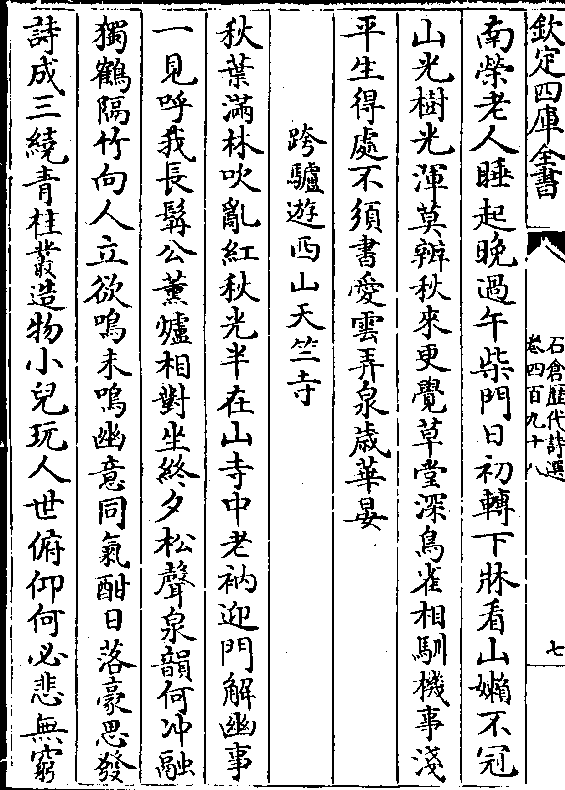 欽定四庫全書
石倉歷代詩選
卷四百九十八
七
南榮老人睡起晚過午柴門日初轉下牀看山嬾不冠
山光樹光渾莫辨秋來更覺草堂深鳥雀相馴機事淺
平生得處不須書愛雲弄泉歲華晏
跨驢遊西山天竺寺
秋葉滿林吹亂紅秋光半在山寺中老衲迎門解幽事
一見呼我長髯公薰爐相對坐終夕松聲泉韻何冲融
獨鶴隔竹向人立欲鳴未鳴幽意同氣酣日落豪思發
詩成三繞青桂叢造物小兒玩人世俯仰何必悲無窮